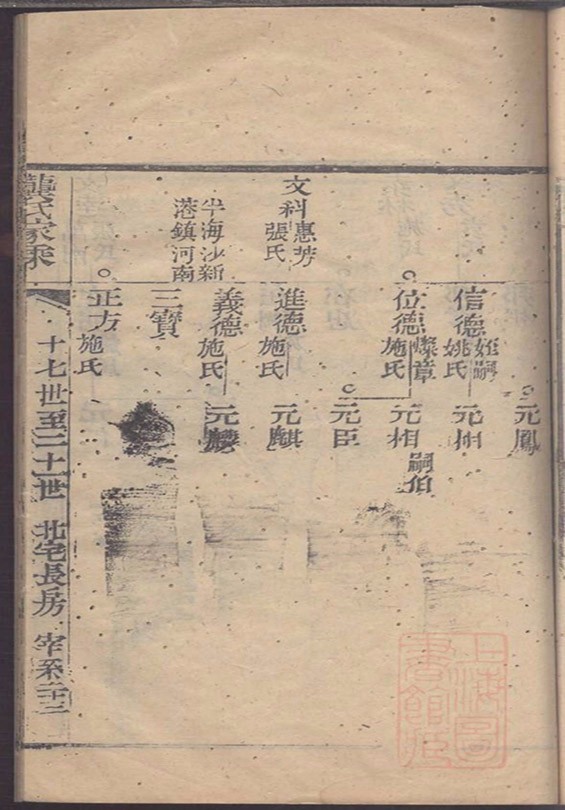 元鳳
信德
姪嗣
姚氏
元相
位德
燦章
施氏
元相
嗣伯
元臣
文科
惠芳
張氏
進德
施氏
元麒
半海沙新
港鎮河南
義德
施氏
元麟
三寶
正方
施氏
龔氏家乘
十七世至二十一世
北宅長房
宰系二十三
上海圖書館藏